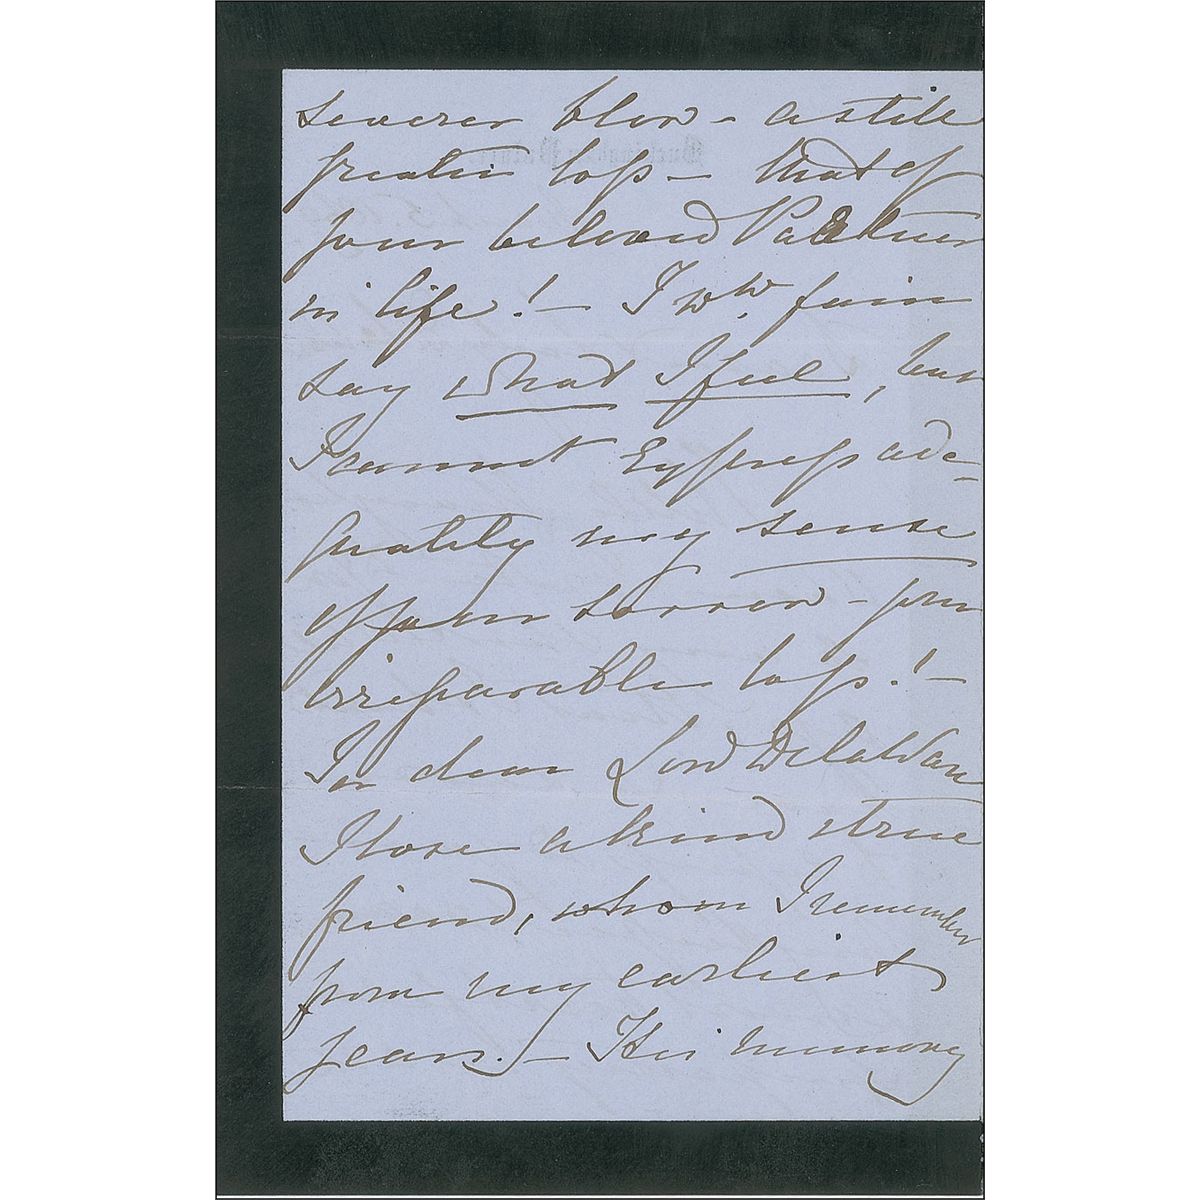 severer blow – a still
greater loss – that of
your beloved Partner
in life! – I wld. fain
say what I feel, but
I cannot express ade-
quately my sense
of your sorrow – your
irreparable loss! –
In dear Lord Delawarr
I lose a kind & true
friend, whom I remember
from my earliest
years. – His memory